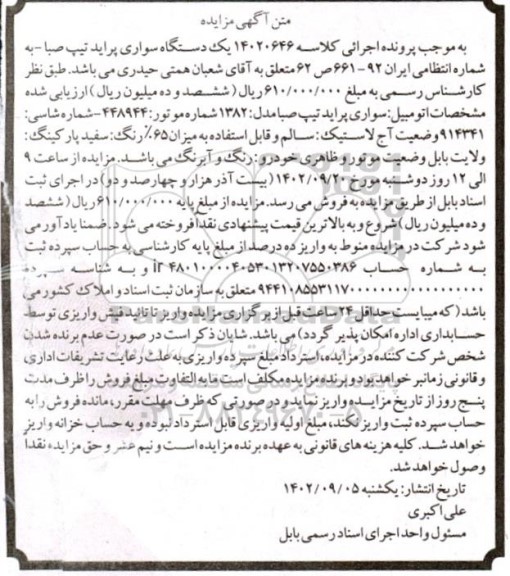 متن آگهی مزایده
به موجب پرونده اجرائی کلاسه ۱۴۰۲۰۶۴۶ یک دستگاه سواری پراید تیپ صبا-به
شماره انتظامی ایران ۹۲-۶۶۱ص ۶۲ متعلق به آقای شعبان همتی حیدری می باشد. طبق نظر
کارشناس رسمی به مبلغ ۶۱۰/۰۰۰/۰۰۰ ریال (ششصد و ده میلیون ریال) ارزیابی شده
مشخصات اتومبیل: سواری پراید تیپ صبا مدل: ۱۳۸۲ شماره موتور: ۴۴۸۹۴۴-شماره شاسی:
۹۱۴۳۴۱ وضعیت آج لاستیک: سالم و قابل استفاده به میزان ۶۵٪ رنگ: سفید پارکینگ:
ولایت بابل وضعیت موتور و ظاهری خودرو: رنگ و آبرنگ می باشد. مزایده از ساعت ۹
الی ۱۲ روز دوشنبه مورخ ۱۴۰۲/۰۹/۲۰ (بیست آذر هزار و چهارصد و دو) در اجرای ثبت
اسناد بابل از طریق مزایده به فروش می رسد. مزایده از مبلغ پایه ۶۱۰/۰۰۰/۰۰۰ ریال (ششصد
و ده میلیون ریال) شروع و به بالاترین قیمت پیشنهادی نقدا فروخته می شود. ضمنا یادآور می
شود شرکت در مزایده منوط به واریز ده درصد از مبلغ پایه کارشناسی به حساب سپرده ثبت
به شماره حساب ir ۴۸۰۱۰۰۰۰۴۰۵۳۰۱۳۲۰۷۵۵۰۳۸۶ و به شناسه سپرده
۹۴۴۱۰۸۵۵۳۱۱۷۰۰۰۰۰۰۰۰۰۰۰۰۰۰۰۰۰۰ متعلق به سازمان ثبت اسناد و املاک کشور می
باشد (که میبایست حداقل ۲۴ ساعت قبل از برگزاری مزایده واریز تا تائید فیش واریزی توسط
حسابداری اداره امکان پذیر گردد) می باشد. شایان ذکر است در صورت عدم برنده شدن
شخص شرکت کننده در مزایده، استرداد مبلغ سپرده واریزی به علت رعایت تشریفات اداری
و قانونی زمانبر خواهد بود و برنده مزایده مکلف است ما به التفاوت مبلغ فروش را ظرف مدت
پنج روز از تاریخ مزایده واریز نماید و در صورتی که ظرف مهلت مقرر، مانده فروش را به
حساب سپرده ثبت واریز نکند، مبلغ اولیه واریزی قابل استرداد نبوده و به حساب خزانه واریز
خواهد شد. کلیه هزینه های قانونی به عهده برنده مزایده است و نیم عشر و حق مزایده نقدا
وصول خواهد شد.
تاریخ انتشار: یکشنبه ۱۴۰۲/۰۹/۰۵
علی اکبری
مسئول واحد اجرای اسناد رسمی بابل
۰۲۱-۸۸۳۴۹۶۷۰-۵